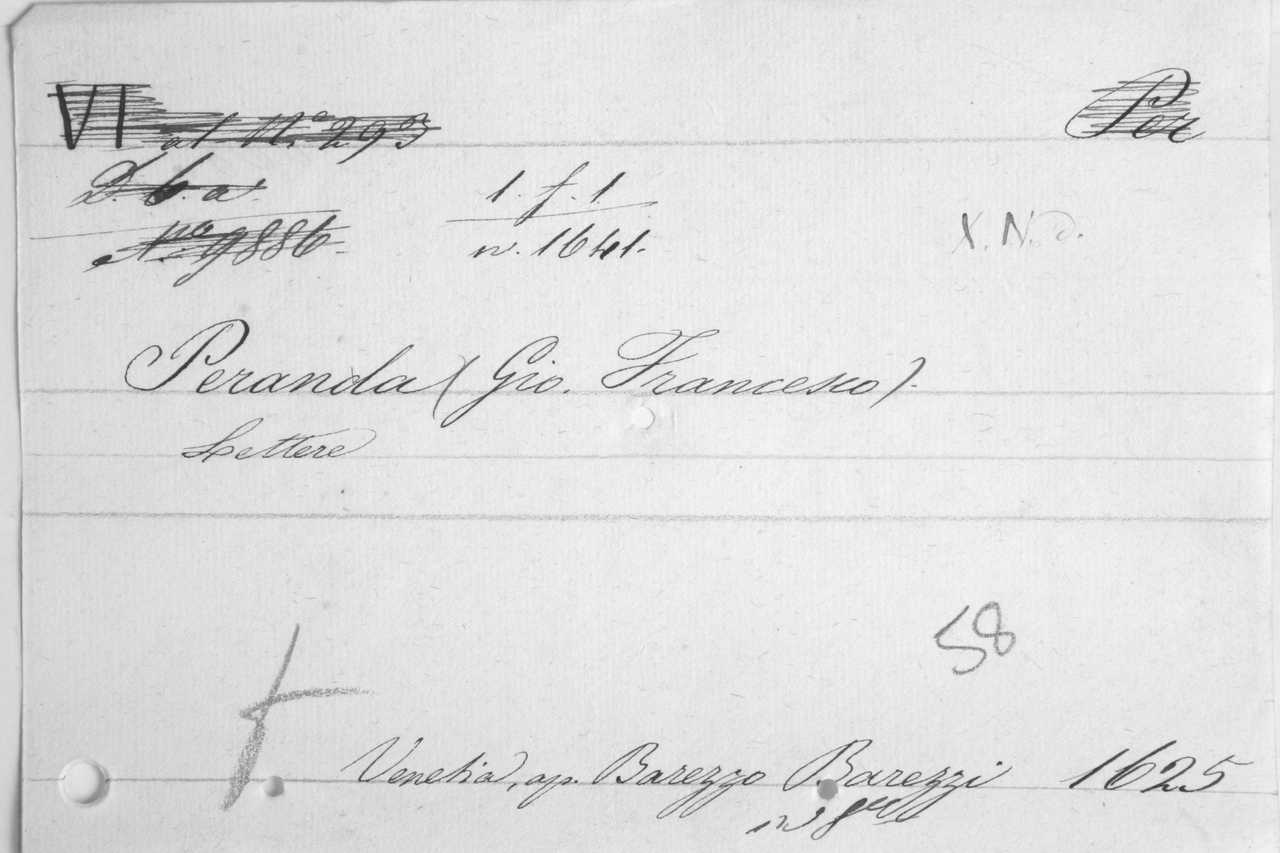 VI al N.º 293 Per
D. b. a. 1. f. 1
9886 n. 1641.
X. N.
Peranda (Gio. Francesco).
Lettere
58
Venetia, ap. Barezzo Barezzi 1625
in 8º